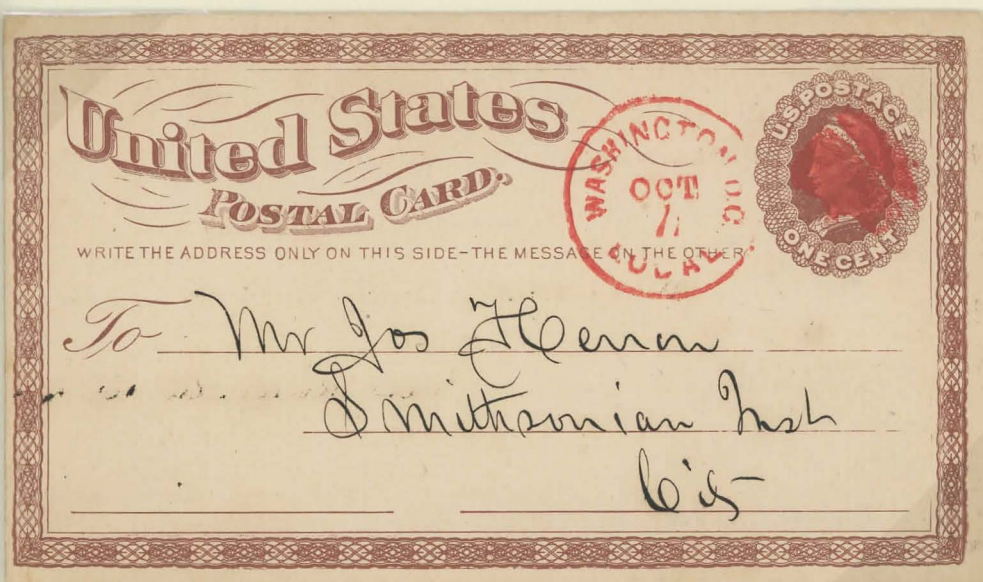 United States
POSTAL CARD.
WRITE THE ADDRESS ONLY ON THIS SIDE-THE MESSAGE ON THE OTHER
WASHINGTON D.C.
OCT
U.S. POSTAGE
ONE CENT
To Mr Jos Herron
Smithsonian Inst
City